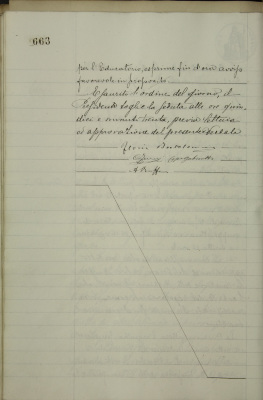 663
per l'Educatorio, esprime fin d'ora avviso
favorevole in proposito.
Esaurito l'ordine del giorno, il
Presidente toglie la seduta alle ore quin
dici e minuti trenta, previa lettura
ed approvazione del presente verbale